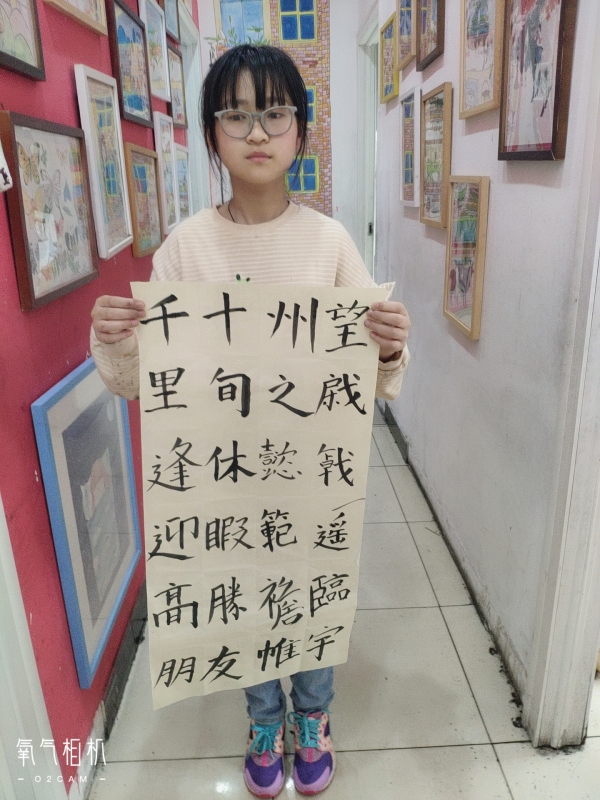 望戚戟遥臨宇
州之懿範襜帷
十旬休暇勝友
千里逢迎髙朋
氧气相机
– O2CAM –